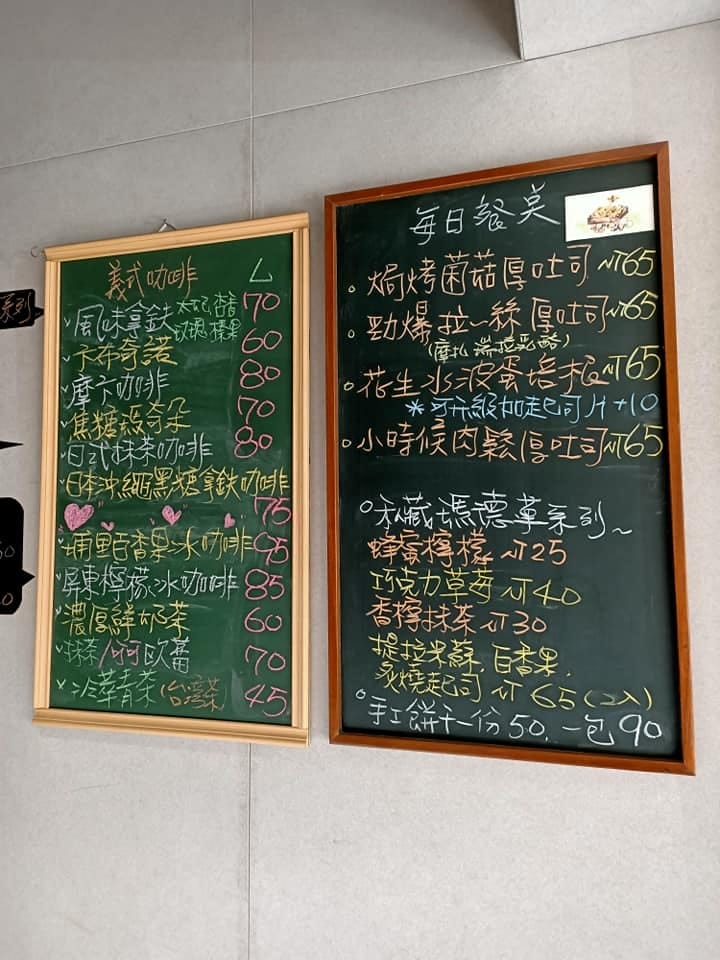 系列
義式咖啡 L
風味拿鐵 太妃 杏香 70
玫瑰 榛果
卡布奇諾 60
摩卡咖啡 80
焦糖瑪奇朵 70
日式抹茶咖啡 80
日本沖繩黑糖拿鐵咖啡
75
埔里百香果冰咖啡 95
屏東檸檬冰咖啡 85
濃厚鮮奶茶 60
抹茶/可可歐蕾 70
冷萃青茶(台灣茶) 45
每日餐美
焗烤菌菇厚吐司 NT65
勁爆拉~絲厚吐司 NT65
(摩扎瑞拉乳酪)
花生冰波蛋培根 NT65
*可升級加起司片+10
小時候肉鬆厚吐司 NT65
私藏瑪德蓮系列~
蜂蜜檸檬 NT25
巧克力草莓 NT40
香檸抹茶 NT30
提拉米蘇.百香果.
炙燒起司 NT 65(2入)
手工餅干一份50.一包90